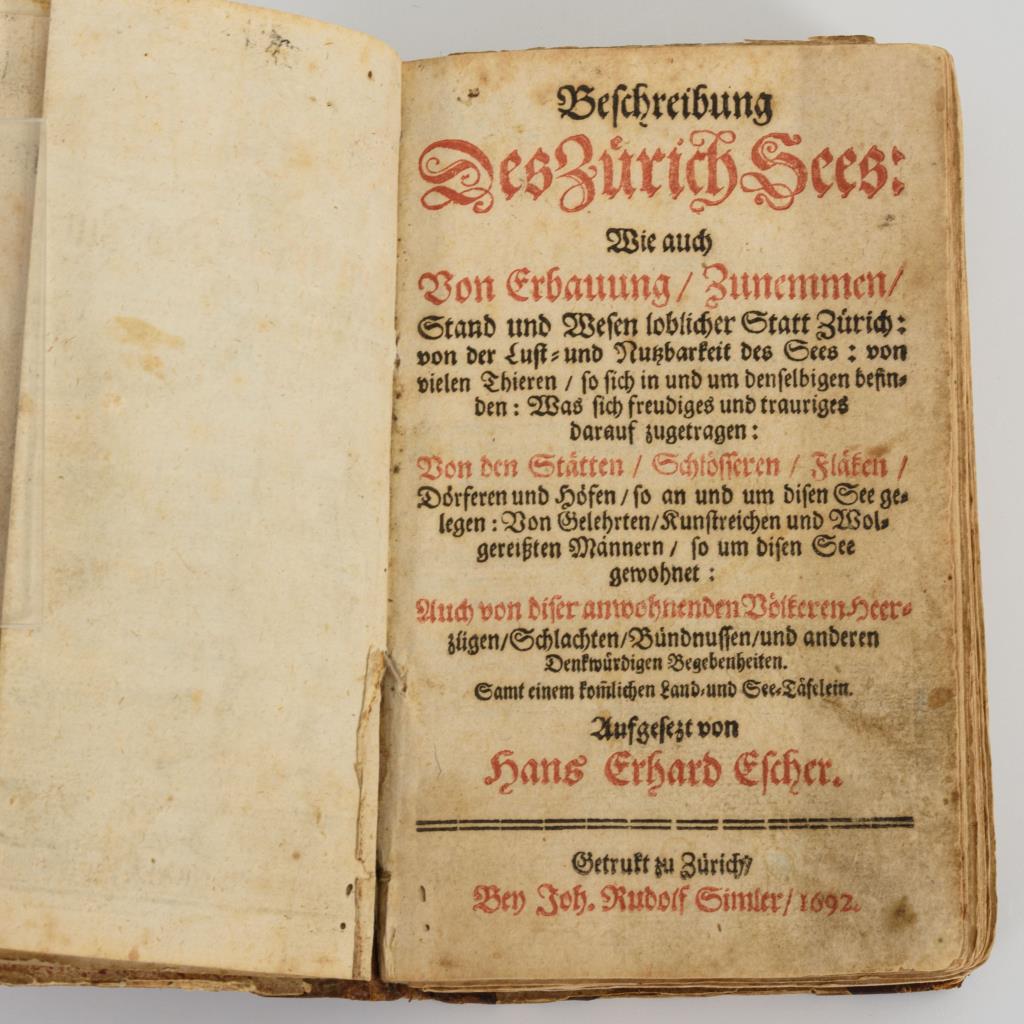 Beschreibung
Des Zürich Sees:
Wie auch
Von Erbauung / Zunemmen /
Stand und Wesen loblicher Statt Zürich:
von der Lust- und Nutzbarkeit des Sees: von
vielen Thieren / so sich in und um denselbigen befin-
den: Was sich freudiges und trauriges
darauf zugetragen:
Von den Stätten / Schlösseren / Fläken /
Dörferen und Höfen / so an und um disen See ge-
legen: Von Gelehrten / Kunstreichen und Wol-
gereißten Männern / so um disen See
gewohnet:
Auch von diser anwohnenden Völkeren Heer-
zügen / Schlachten / Bündnussen / und anderen
Denkwürdigen Begebenheiten.
Samt einem kom̃lichen Land- und See-Täfelein.
Aufgesezt von
Hans Erhard Escher.
Getrukt zu Zürich /
Bey Joh. Rudolf Simler / 1692.